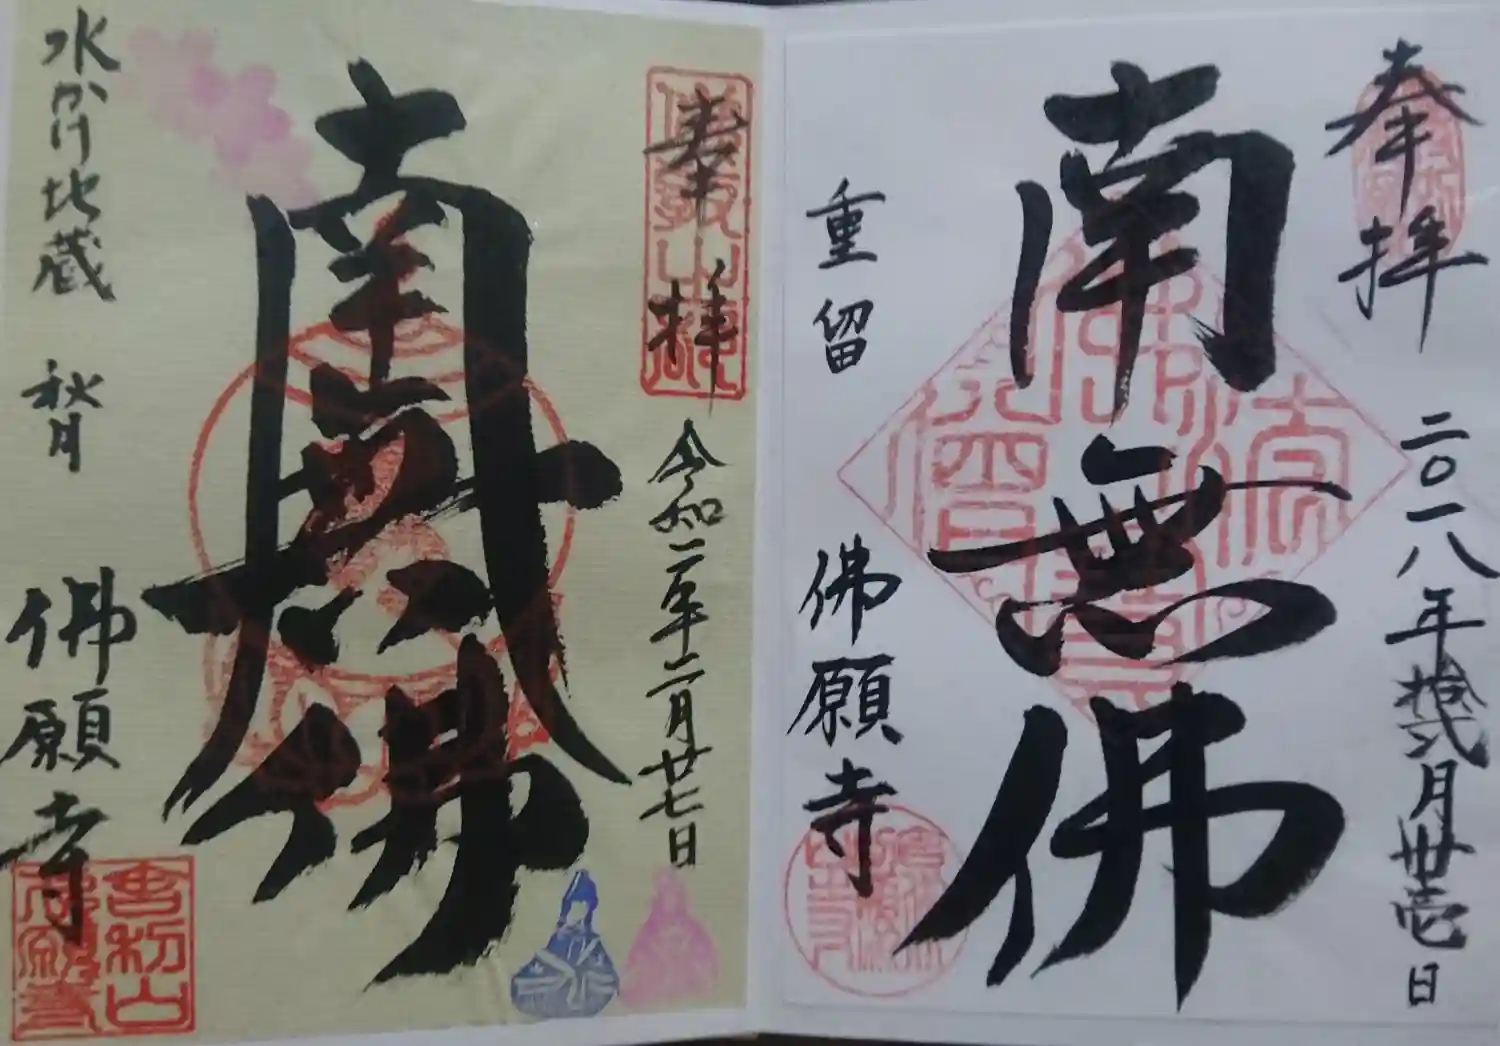 奉拝
二〇一八年拾弐月卅壱日
南無佛
重留
佛願寺
佛法僧寶
奉拝
令和二年二月廿七日
南無佛
水かけ地蔵 秋月
佛願寺